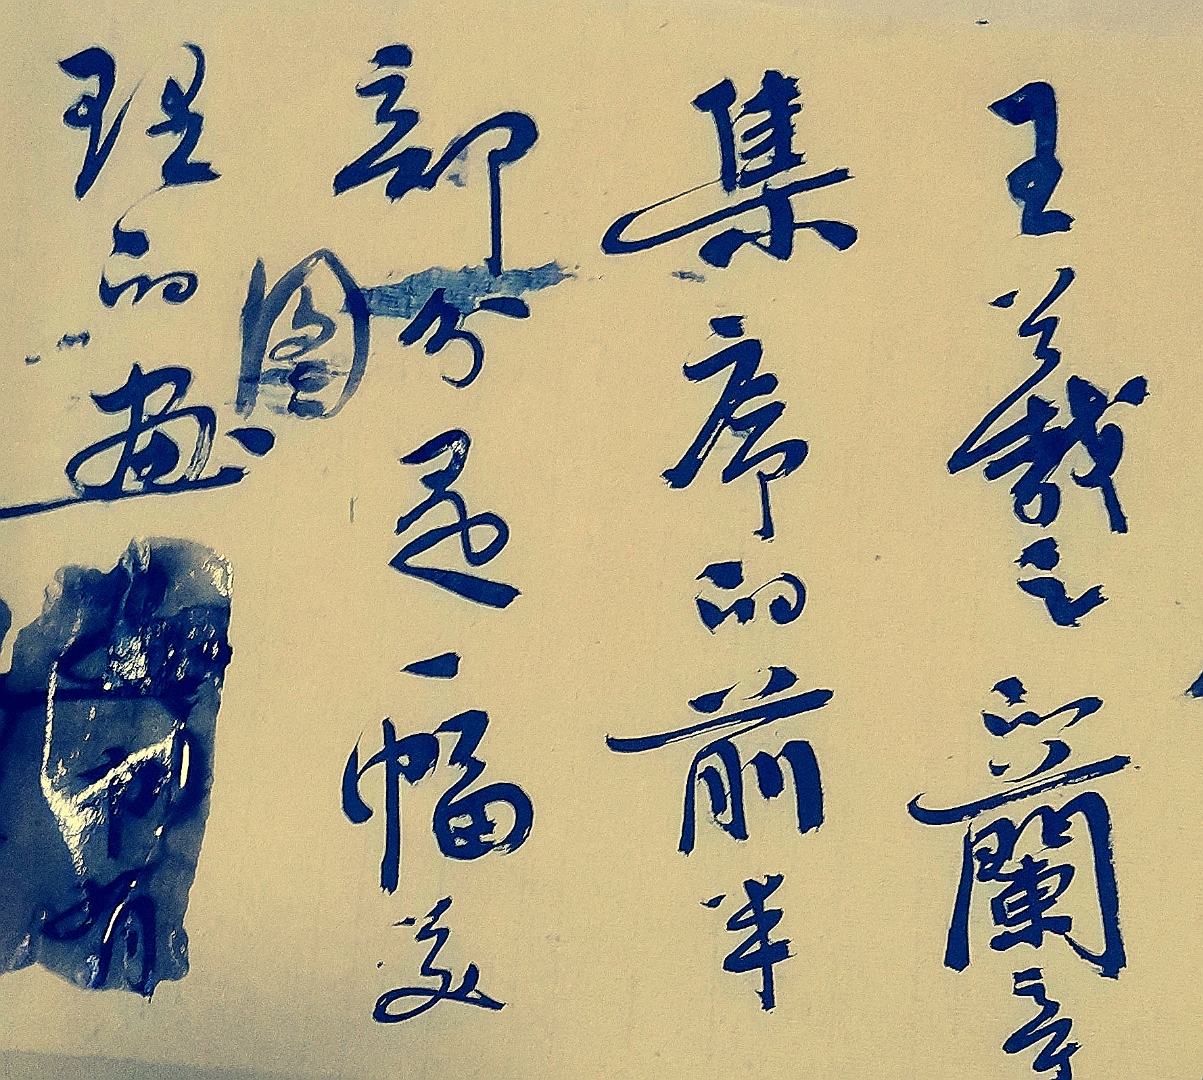 王羲之的蘭亭
集序的前半
部分是一幅美
理的画
图